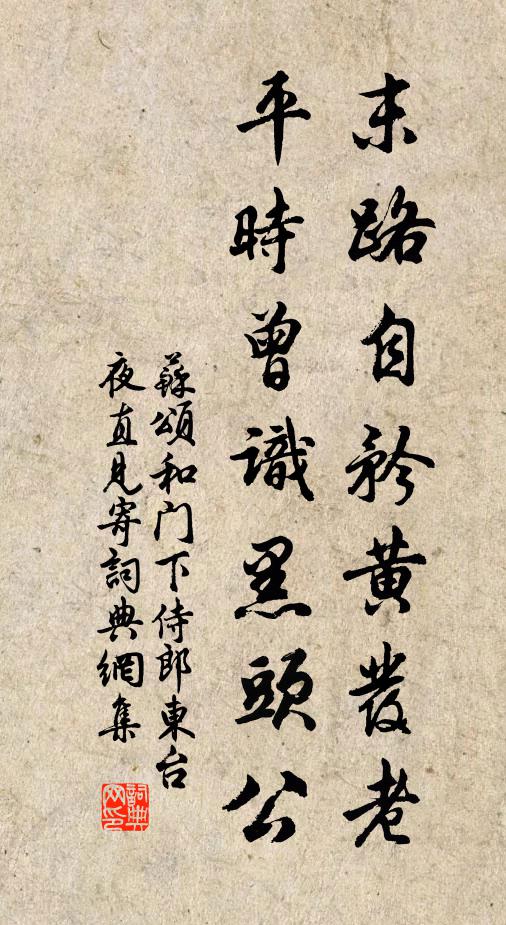 末路自矜黃發老
平時曾識黑頭公
蘇頌和门下侍郎東台
夜直見寄詞典網集
詞典
网印